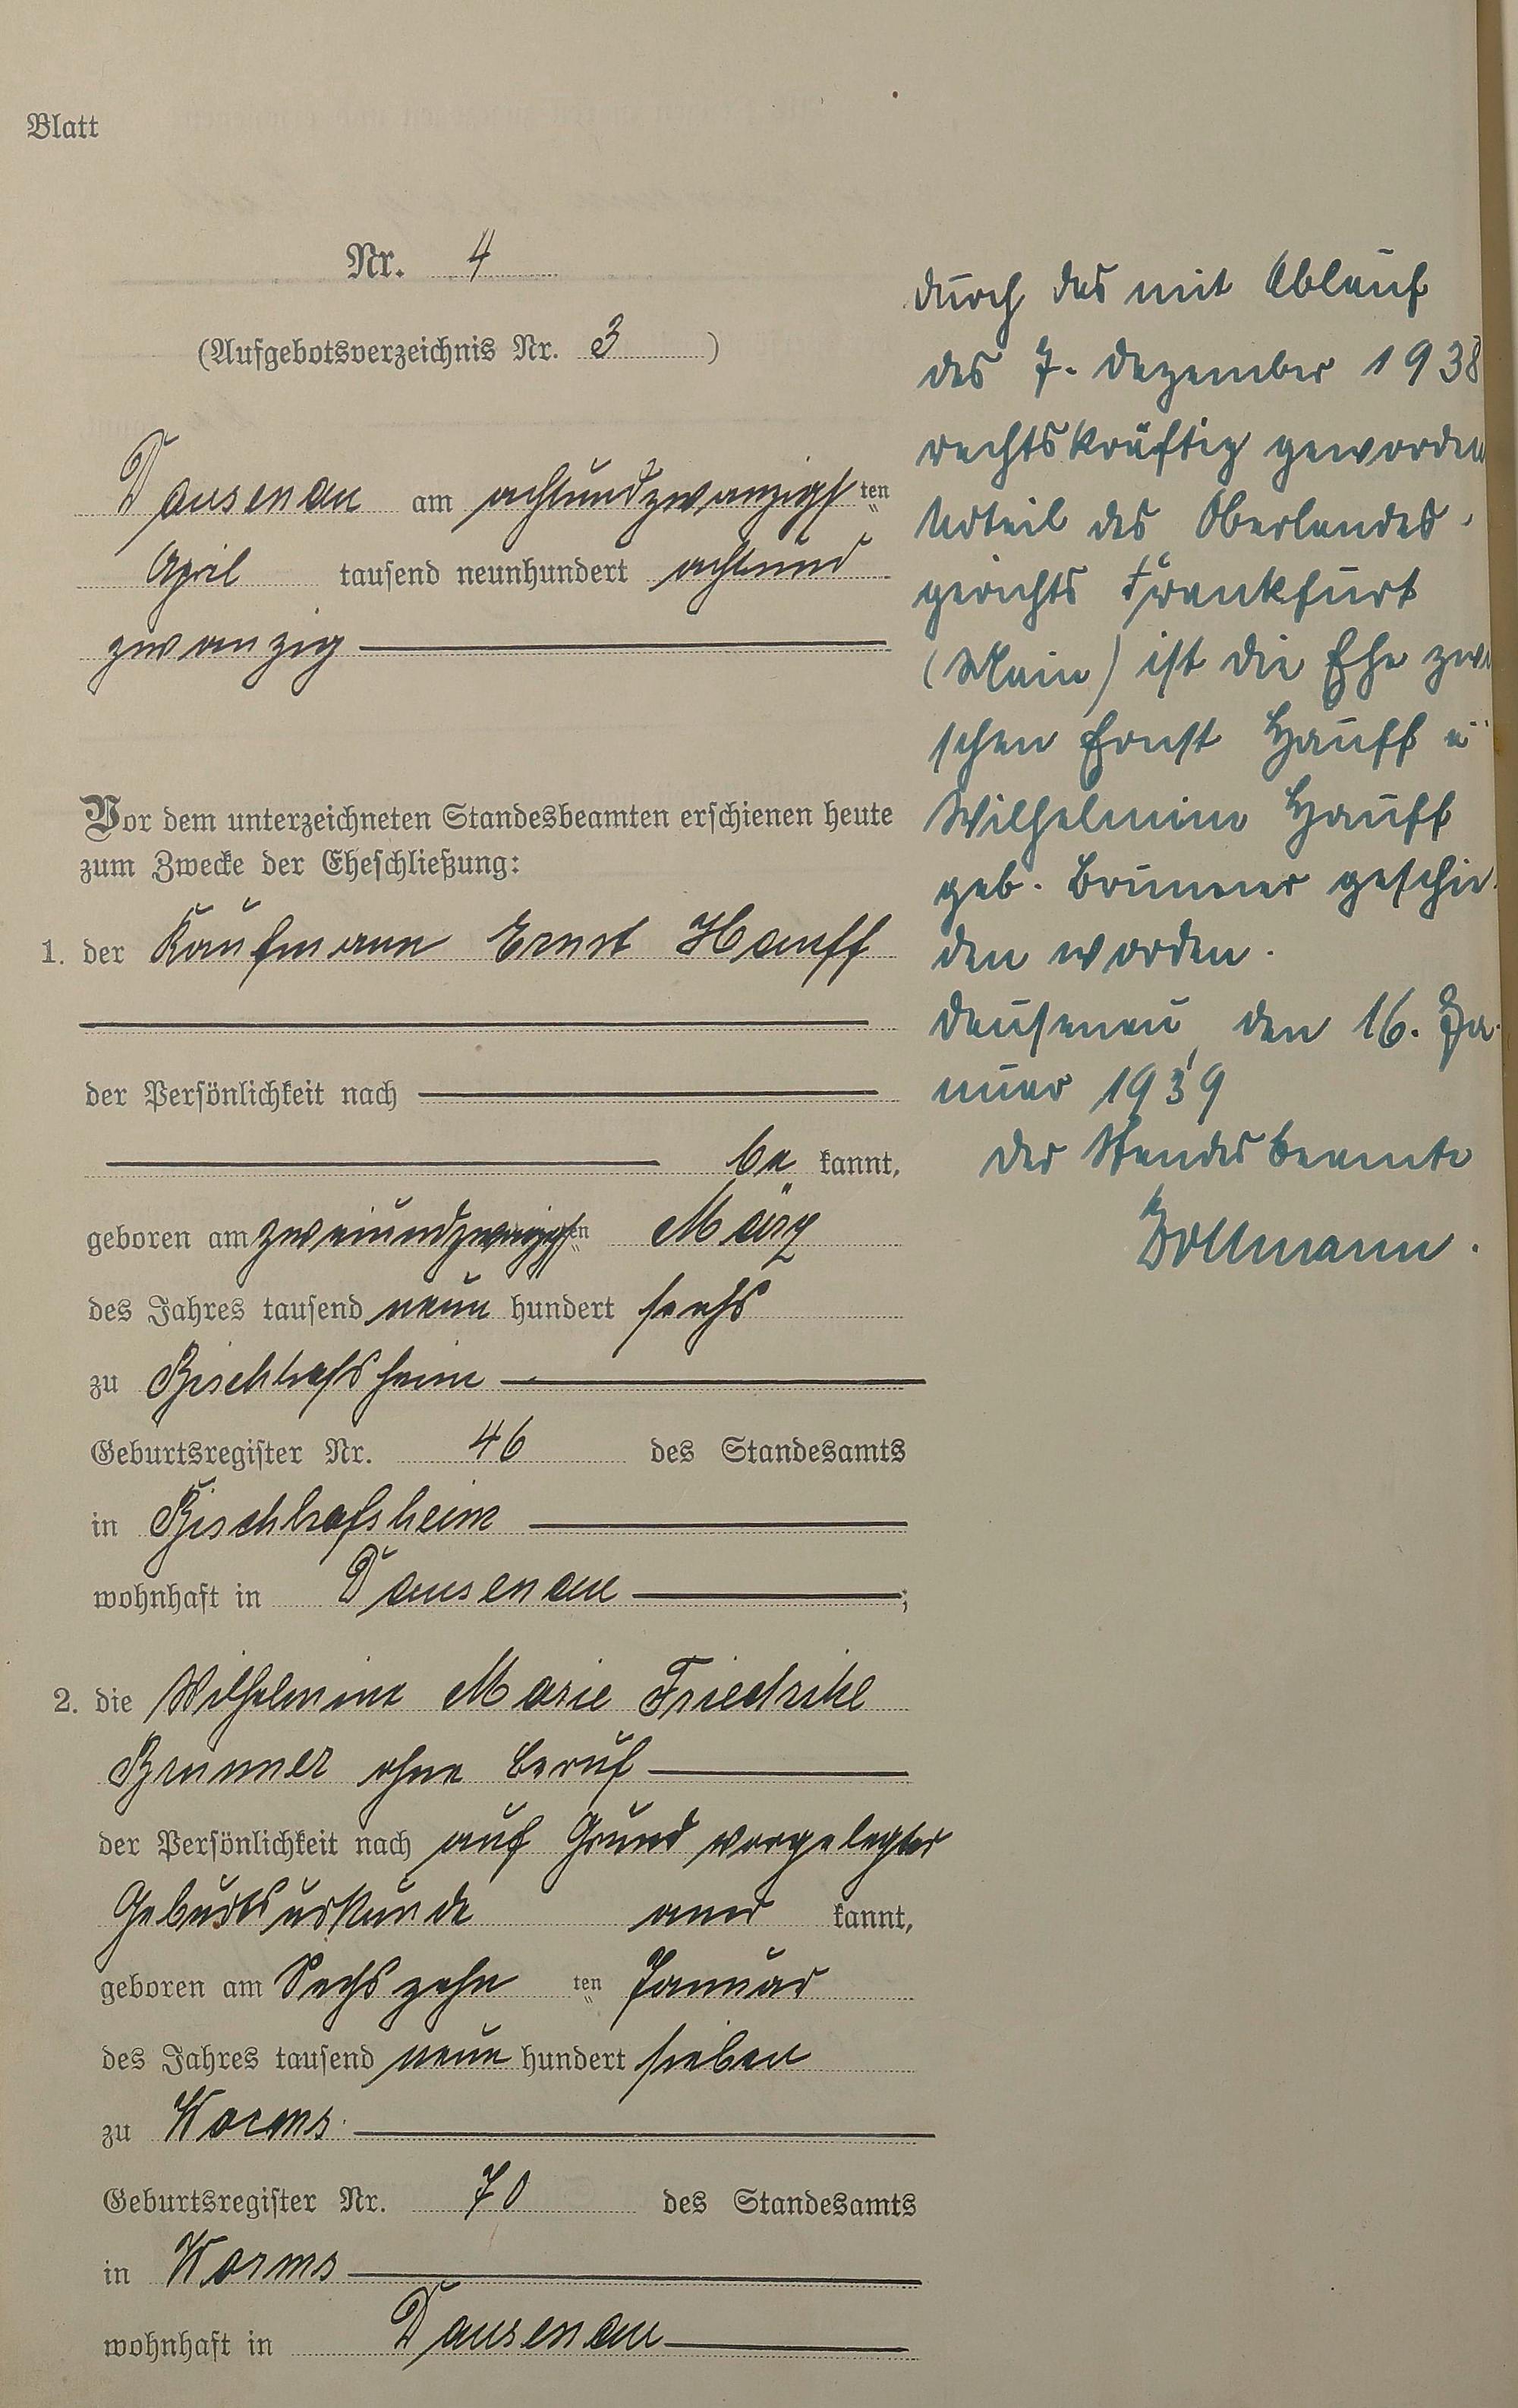 Blatt
Nr. 4
(Aufgebotsverzeichnis Nr. 3)
Dausenau am achtundzwanzigsten
April tausend neunhundert achtund
zwanzig
Vor dem unterzeichneten Standesbeamten erschienen heute
zum Zwecke der Eheschließung:
1. der Kaufmann Ernst Hauff
der Persönlichkeit nach
be kannt,
geboren am zweiundzwanzigsten März
des Jahres tausend neun hundert sechs
zu Bischhofsheim
Geburtsregister Nr. 46 des Standesamts
in Bischhofsheim
wohnhaft in Dausenau;
2. die Wilhelmine Marie Friedrike
Brunner ohne Beruf
der Persönlichkeit nach auf Grund vorgelegter
Geburtsurkunde aner kannt,
geboren am Sechszehn ten Januar
des Jahres tausend neun hundert sieben
zu Worms
Geburtsregister Nr. 70 des Standesamts
in Worms
wohnhaft in Dausenau
Durch das mit Ablauf
des 7. Dezember 1938
rechtskräftig geworden
Urteil des Oberlandes-
gerichts Frankfurt
(Main) ist die Ehe zwi
schen Ernst Hauff u
Wilhelmine Hauff
geb. Brunner geschie-
den worden.
Dausenau, den 16. Ja-
nuar 1939
Der Standesbeamte
Zollmann.